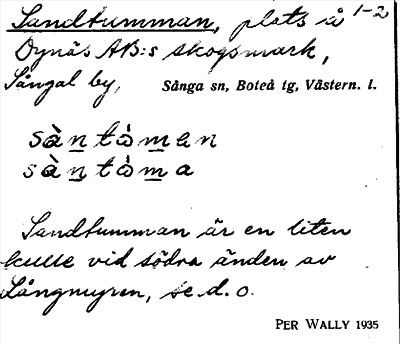 Sandtumman, plats å 1-2
Dynäs AB:s skogsmark,
Sångal by, Sånga sn, Boteå tg, Västern. l.
sàntòman
sàntòma
Sandtumman är en liten
kulle vid södra änden av
Långmyren, se d. o.
PER WALLY 1935